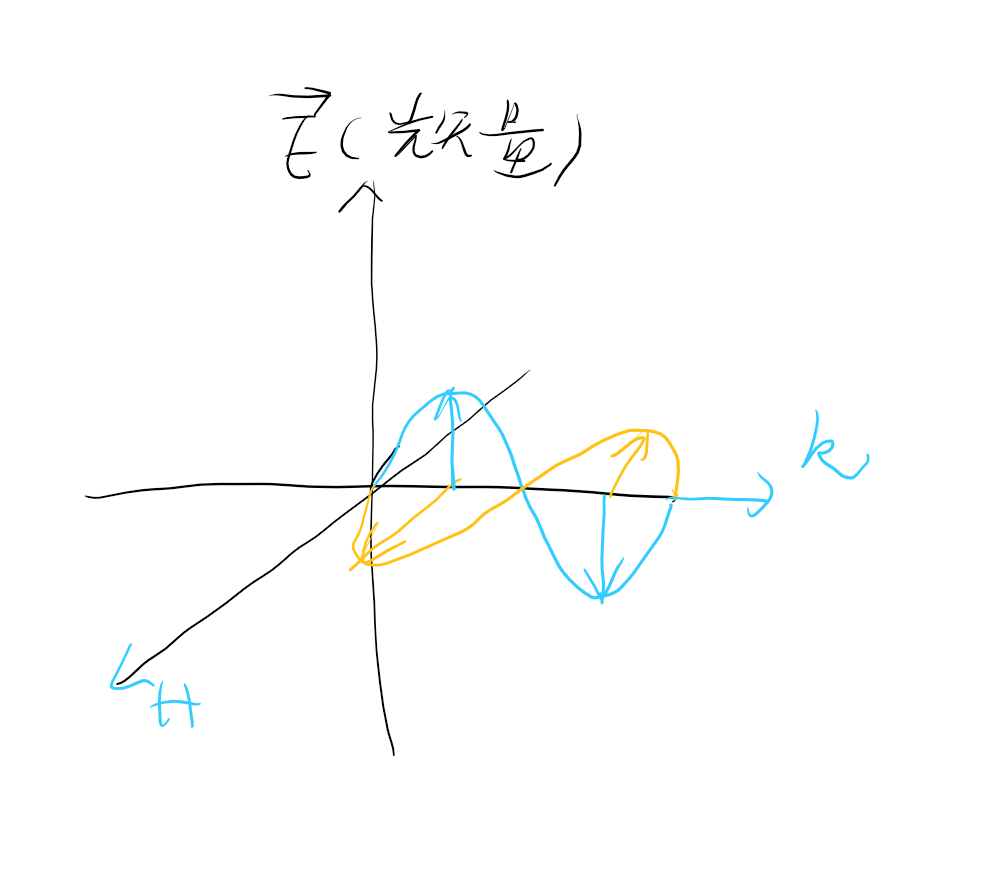 E⃗(光矢量)
k
H